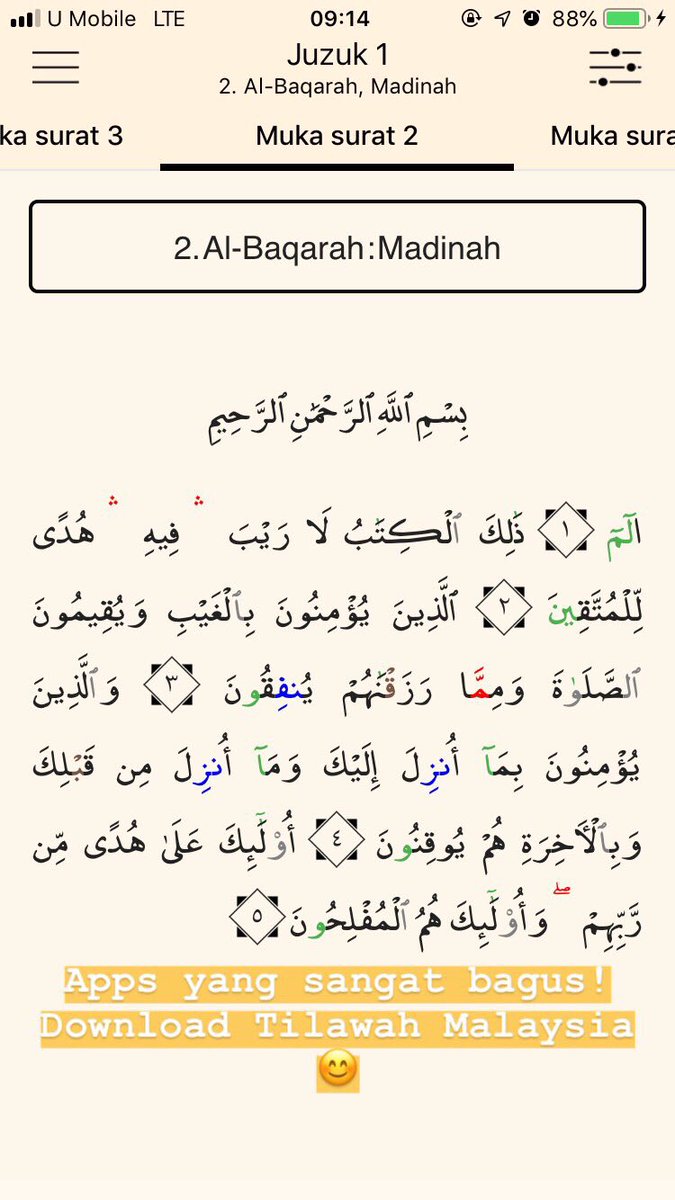 U Mobile LTE 09:14 88%
Juzuk 1
2. Al-Baqarah, Madinah
ka surat 3 Muka surat 2 Muka sura
2. Al-Baqarah:Madinah
بِسْمِ ٱللَّهِ ٱلرَّحْمَٰنِ ٱلرَّحِيمِ
الٓمٓ ١ ذَٰلِكَ ٱلْكِتَٰبُ لَا رَيْبَ ۛ فِيهِ ۛ هُدًى
لِّلْمُتَّقِينَ ٢ ٱلَّذِينَ يُؤْمِنُونَ بِٱلْغَيْبِ وَيُقِيمُونَ
ٱلصَّلَوٰةَ وَمِمَّا رَزَقْنَٰهُمْ يُنفِقُونَ ٣ وَٱلَّذِينَ
يُؤْمِنُونَ بِمَآ أُنزِلَ إِلَيْكَ وَمَآ أُنزِلَ مِن قَبْلِكَ
وَبِٱلْأَخِرَةِ هُمْ يُوقِنُونَ ٤ أُو۟لَٰٓئِكَ عَلَىٰ هُدًى مِّن
رَّبِّهِمْ ۖ وَأُو۟لَٰٓئِكَ هُمُ ٱلْمُفْلِحُونَ ٥
Apps yang sangat bagus!
Download Tilawah Malaysia
😊